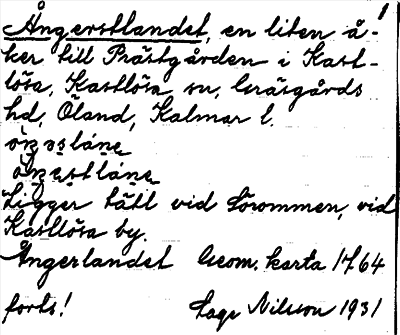 1
Ångerstlandet, en liten å-
ker till Prästgården i Kast-
lösa, Kastlösa sn, Gräsgårds
hd, Öland, Kalmar l.
Ligger tätt vid Sörommen, vid
Kastlösa by.
Ångerlandet Geom. karta 1764
forts! Sage Nilsson 1931